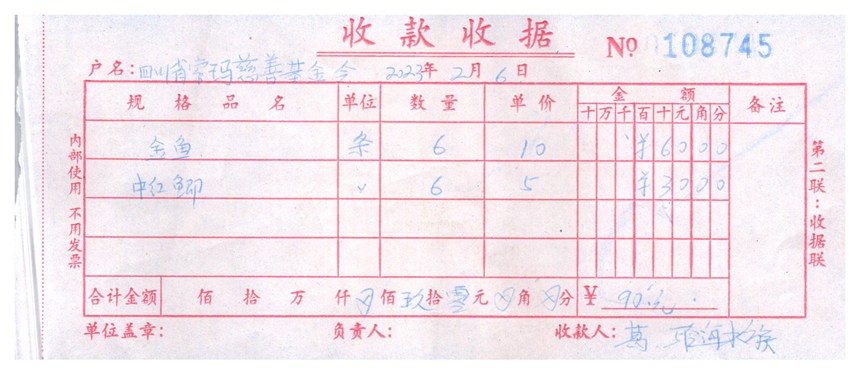 收款收据
No 0108745
户名：四川省索玛慈善基金会 2023年2月6日
规格品名 单位 数量 单价 金额 备注
十 万 千 百 十 元 角 分
金鱼 条 6 10 ¥ 6 0 0 0
中红鲫 〃 6 5 ¥ 3 0 0 0
合计金额 佰 拾 万 仟 佰 玖拾零元 角 分 ¥ 90元
单位盖章： 负责人： 收款人：葛 海水族
内部使用 不用发票
第二联：收据联